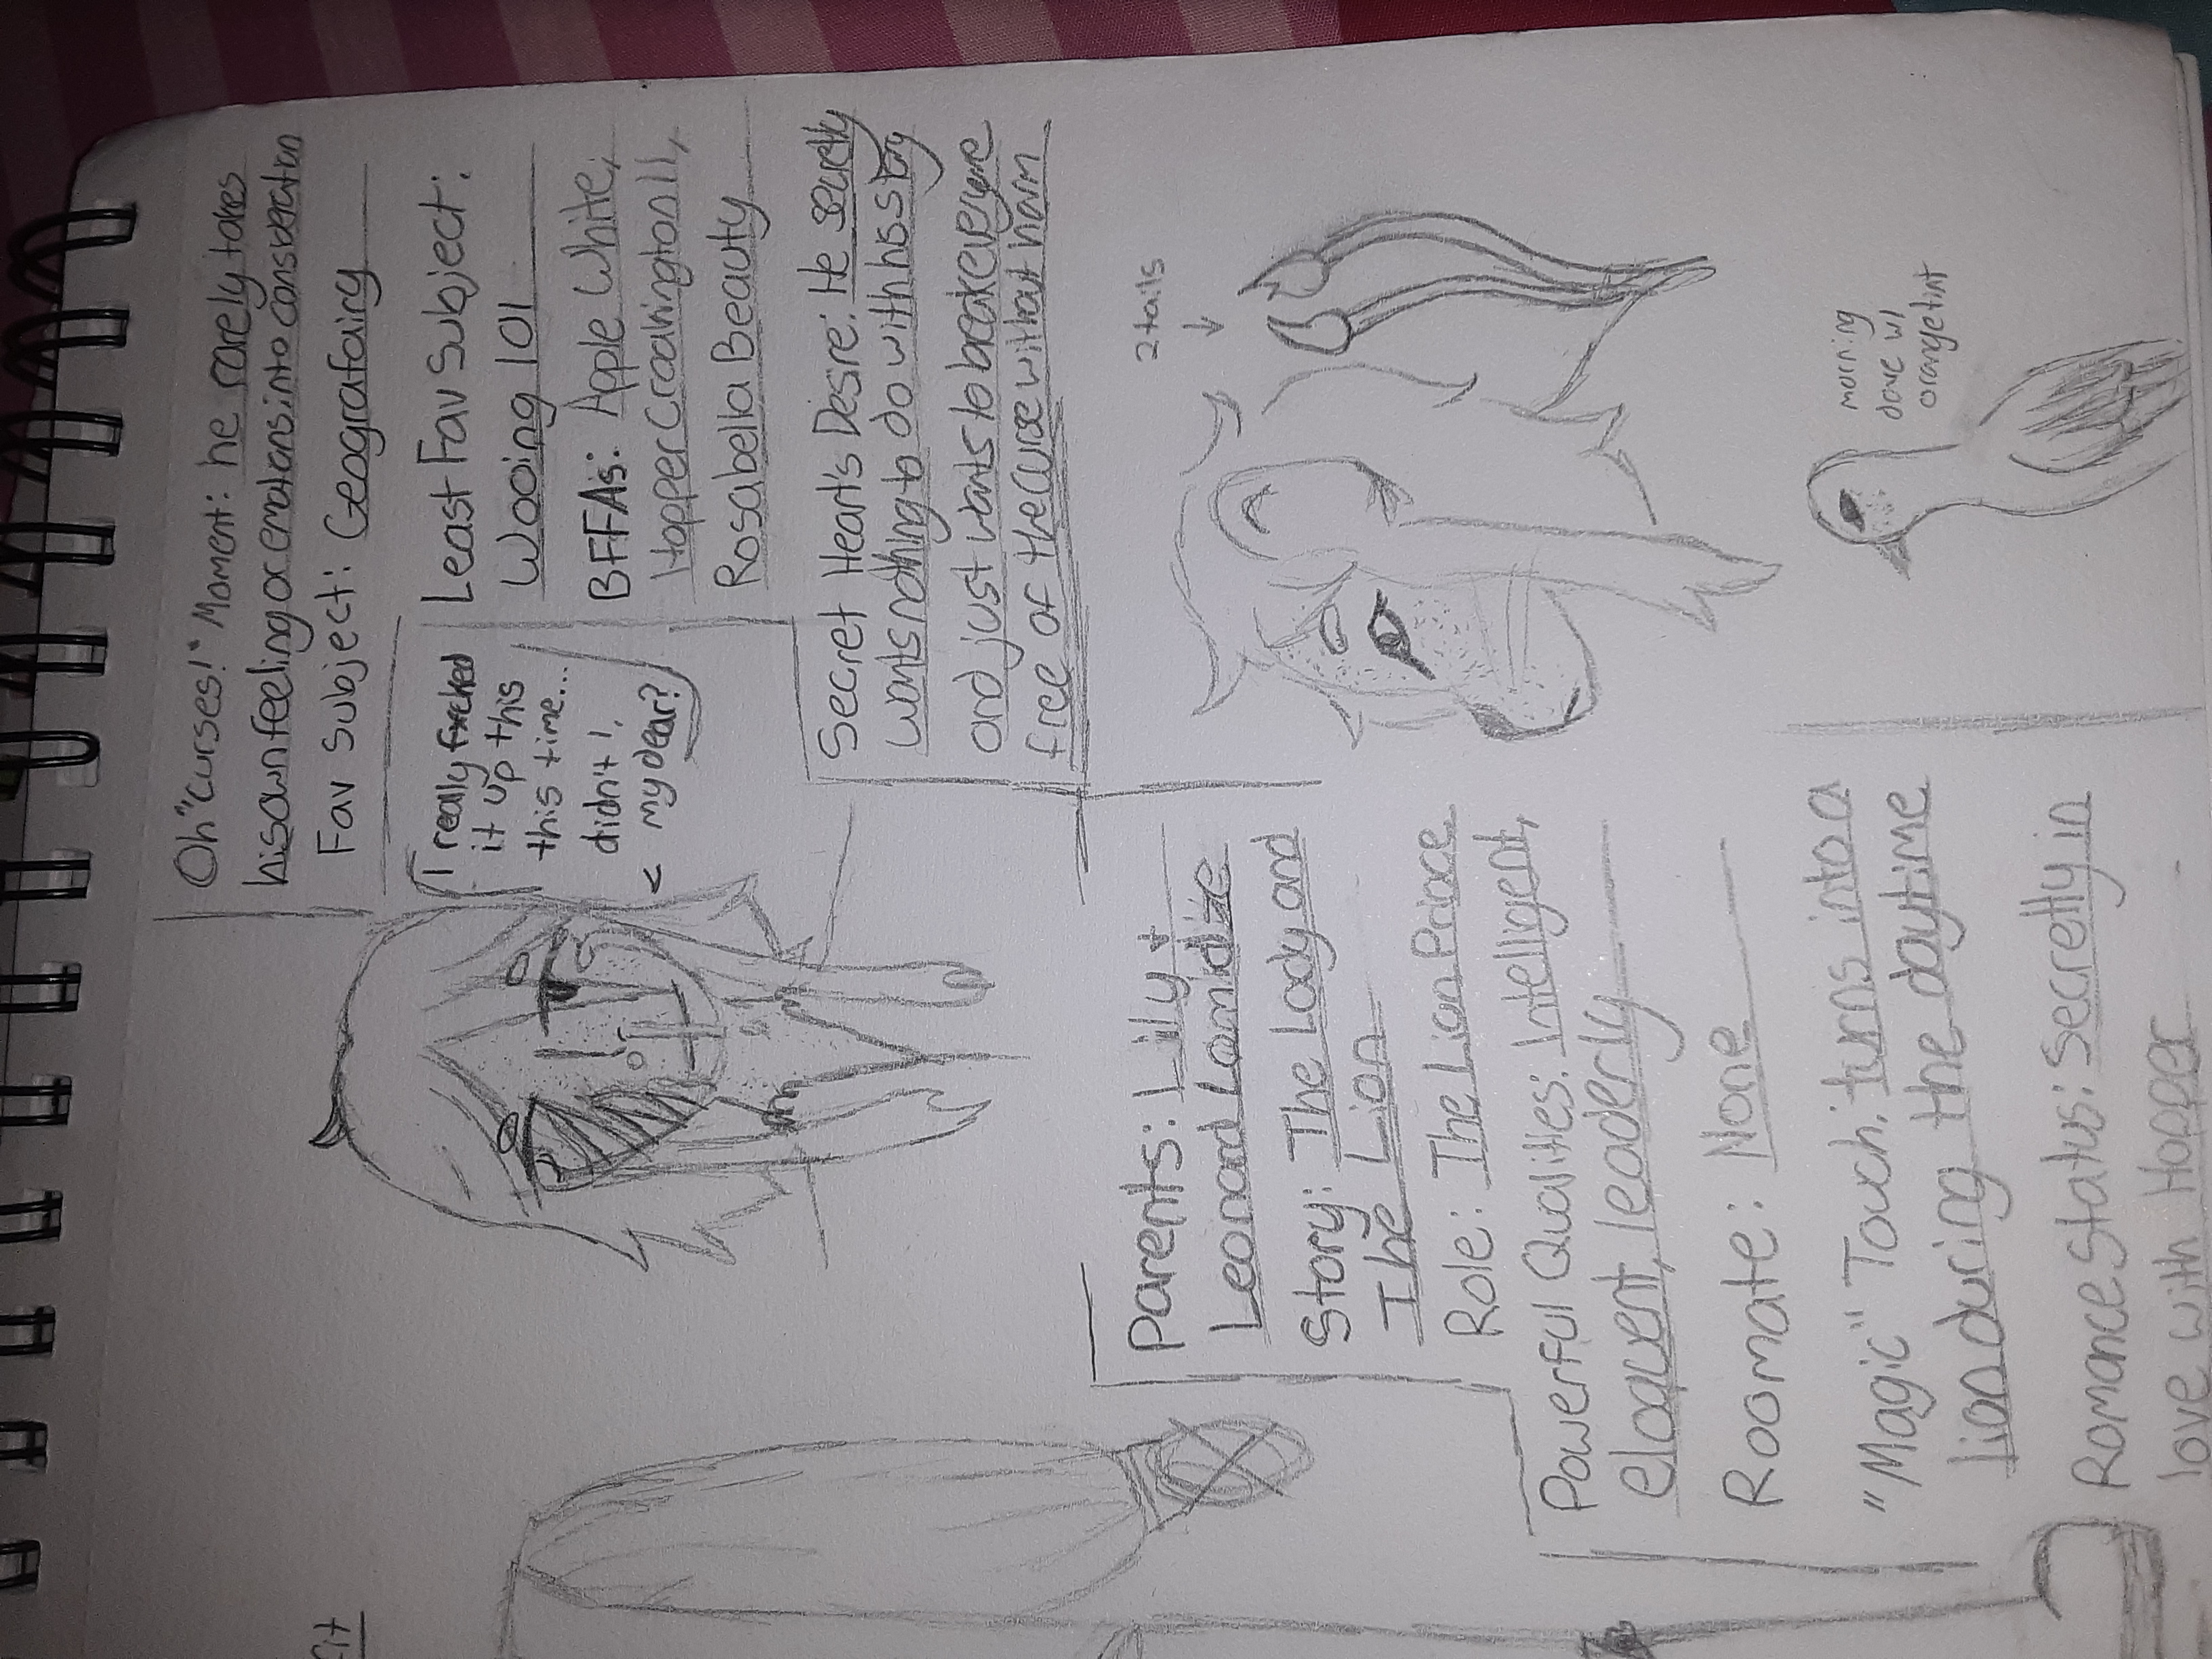 Oh "Curses!" Moment: he rarely takes
his own feeling or emotions into consideration
Fav Subject: Geografairy
I really fxcked
it up this
this time...
didn't I,
my dear?
Least Fav Subject:
Wooing 101
BFFAs: Apple White,
Hopper Croakington II,
Rosabella Beauty
Secret Heart's Desire: He secretly
wants nothing to do with his story
and just wants to break everyone
free of the curse without harm
2 tails
morning
dove w/
orange tint
Parents: Lilly +
Leonard
Story: The Lady and
The Lion
Role: The Lion Prince
Powerful Qualities: Intelligent,
eloquent, leaderly
Roomate: None
"Magic" Touch: turns into a
lion during the daytime
Romance Status: Secretly in
love with Hopper
fit